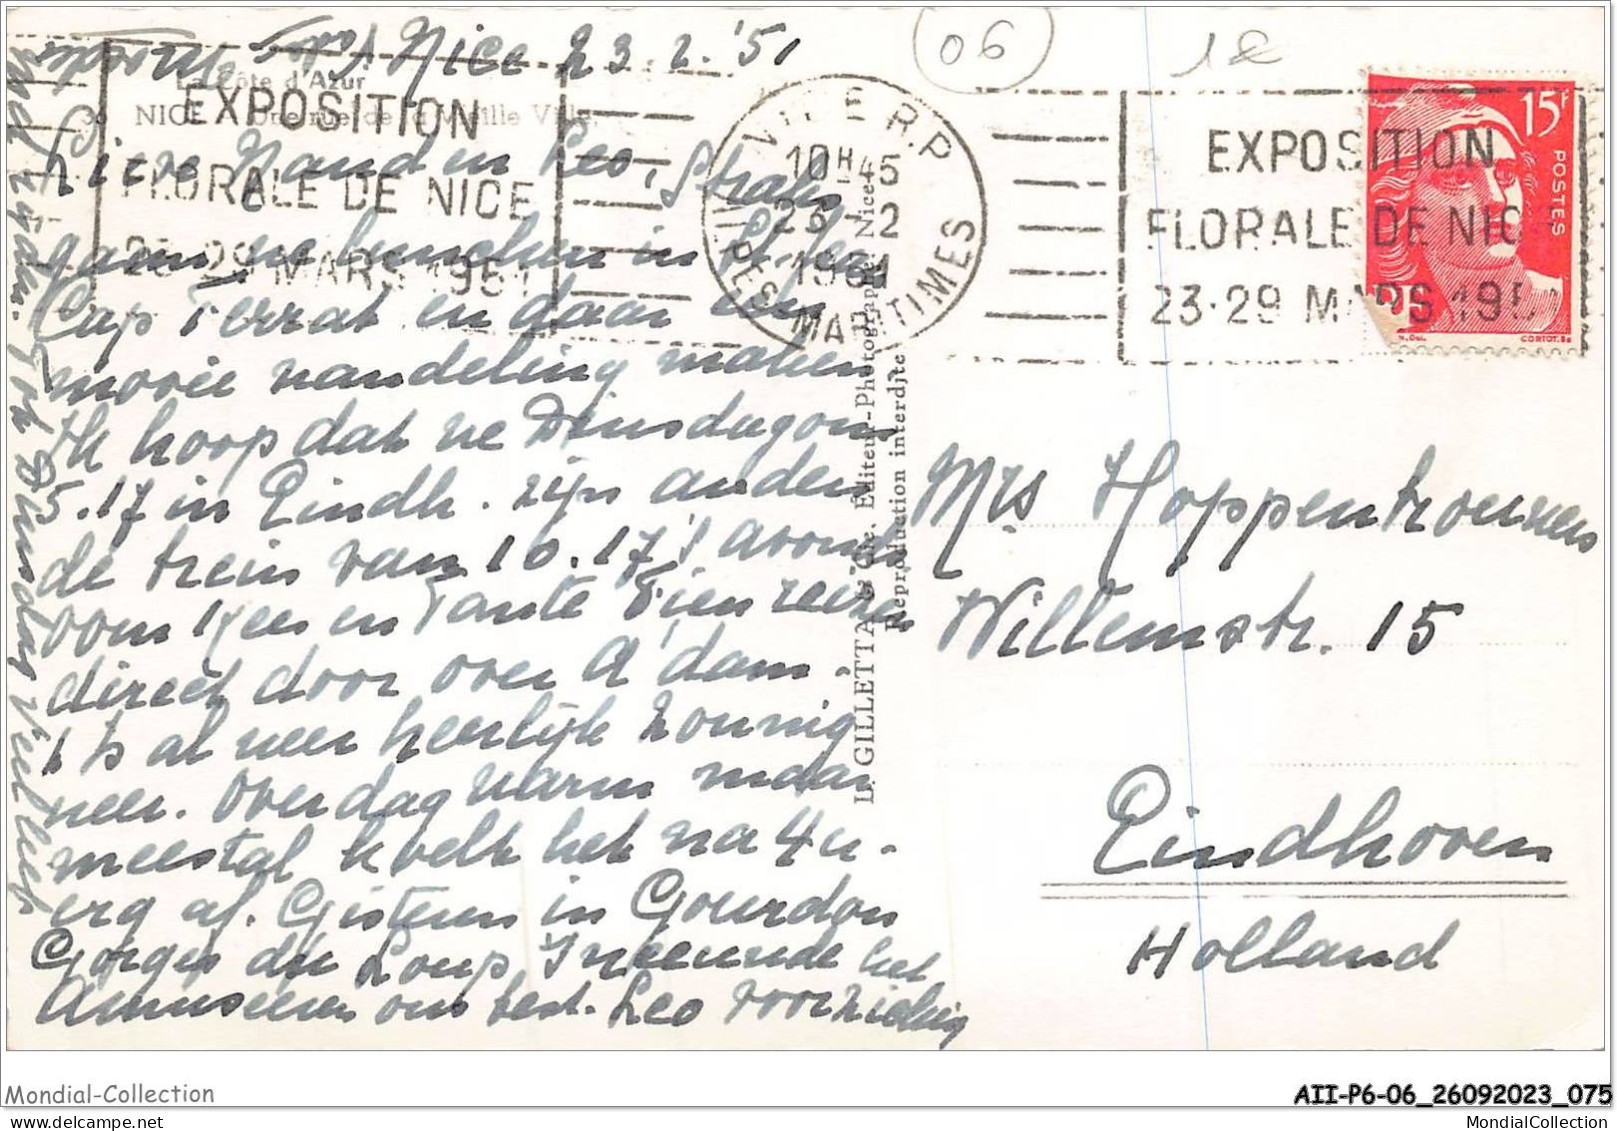 Nice 23.2.'51
06
18
La Côte d'Azur
30 NICE - Une rue de la Vieille Ville.
EXPOSITION
FLORALE DE NICE
23-29 MARS 1951
NICE R.P.
10H45
23-2
1951
ALPES MARITIMES
EXPOSITION
FLORALE DE NICE
23·29 MARS 1951
15F
POSTES
CORTOT.Sc
Lieve en Leo, Straks
gaan we lunchen in St. Jean
Cap Ferrat en daar een
mooie wandeling maken
Ik hoop dat we Dinsdag om
5.17 in Eindh. zijn anders
de trein van 10.17 's avonds
oom en Tante Sien reizen
direct door over A'dam.
't Is al weer heerlijk zonnig
weer. Overdag warm maar
meestal koelt het na 4 u.
erg af. Gisteren in Gourdon
Gorges du Loup. het
Amuseeren ons best. Leo voorzichtig
Tot Dinsdag Veel liefs
L. GILLETTA & Cie. Editeur-Photographe, Nice
Reproduction interdite
Mrs Hoppenbrouwers
Willemstr. 15
Eindhoven
Holland
Mondial-Collection
AII-P6-06_26092023_075
MondialCollection